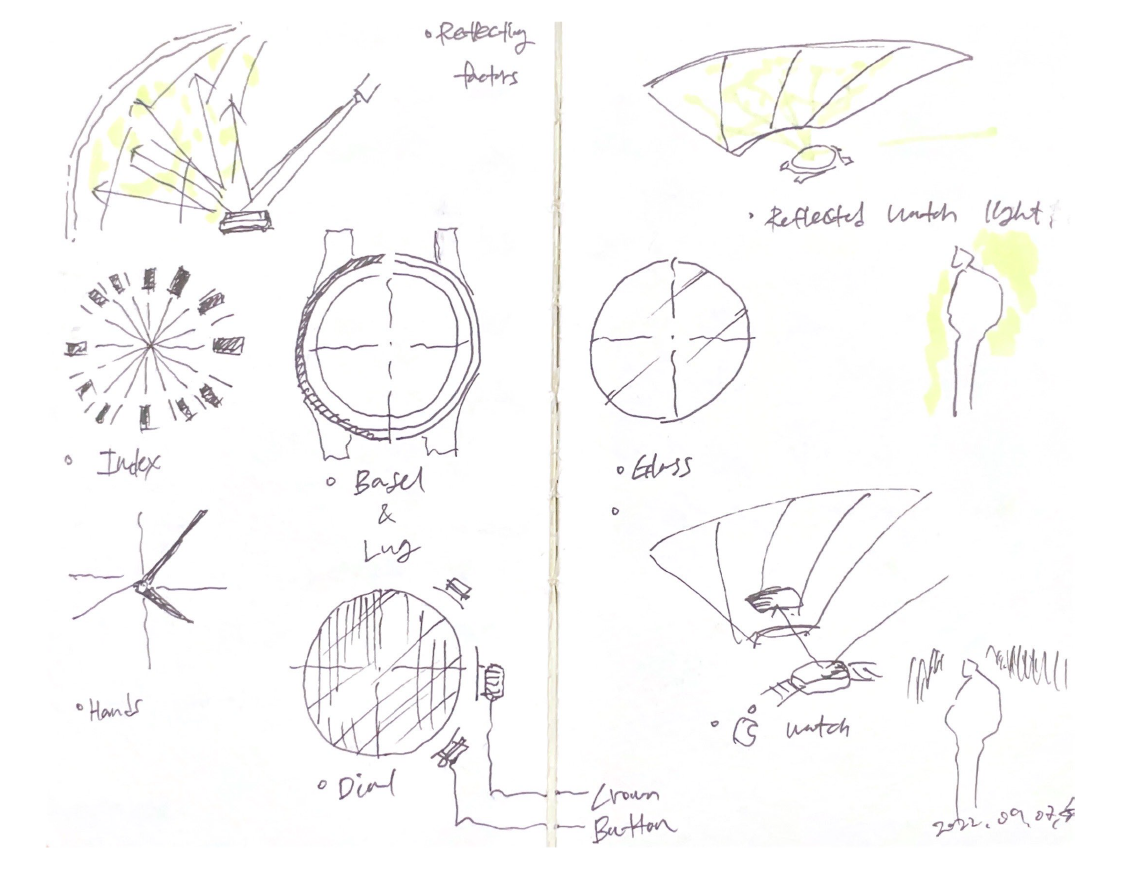 • Reflecting
factors
• Reflected watch light
• Index
• Basel
&
Lug
• Glass
• Hands
• Dial
watch
Crown
Button
2022.09.07